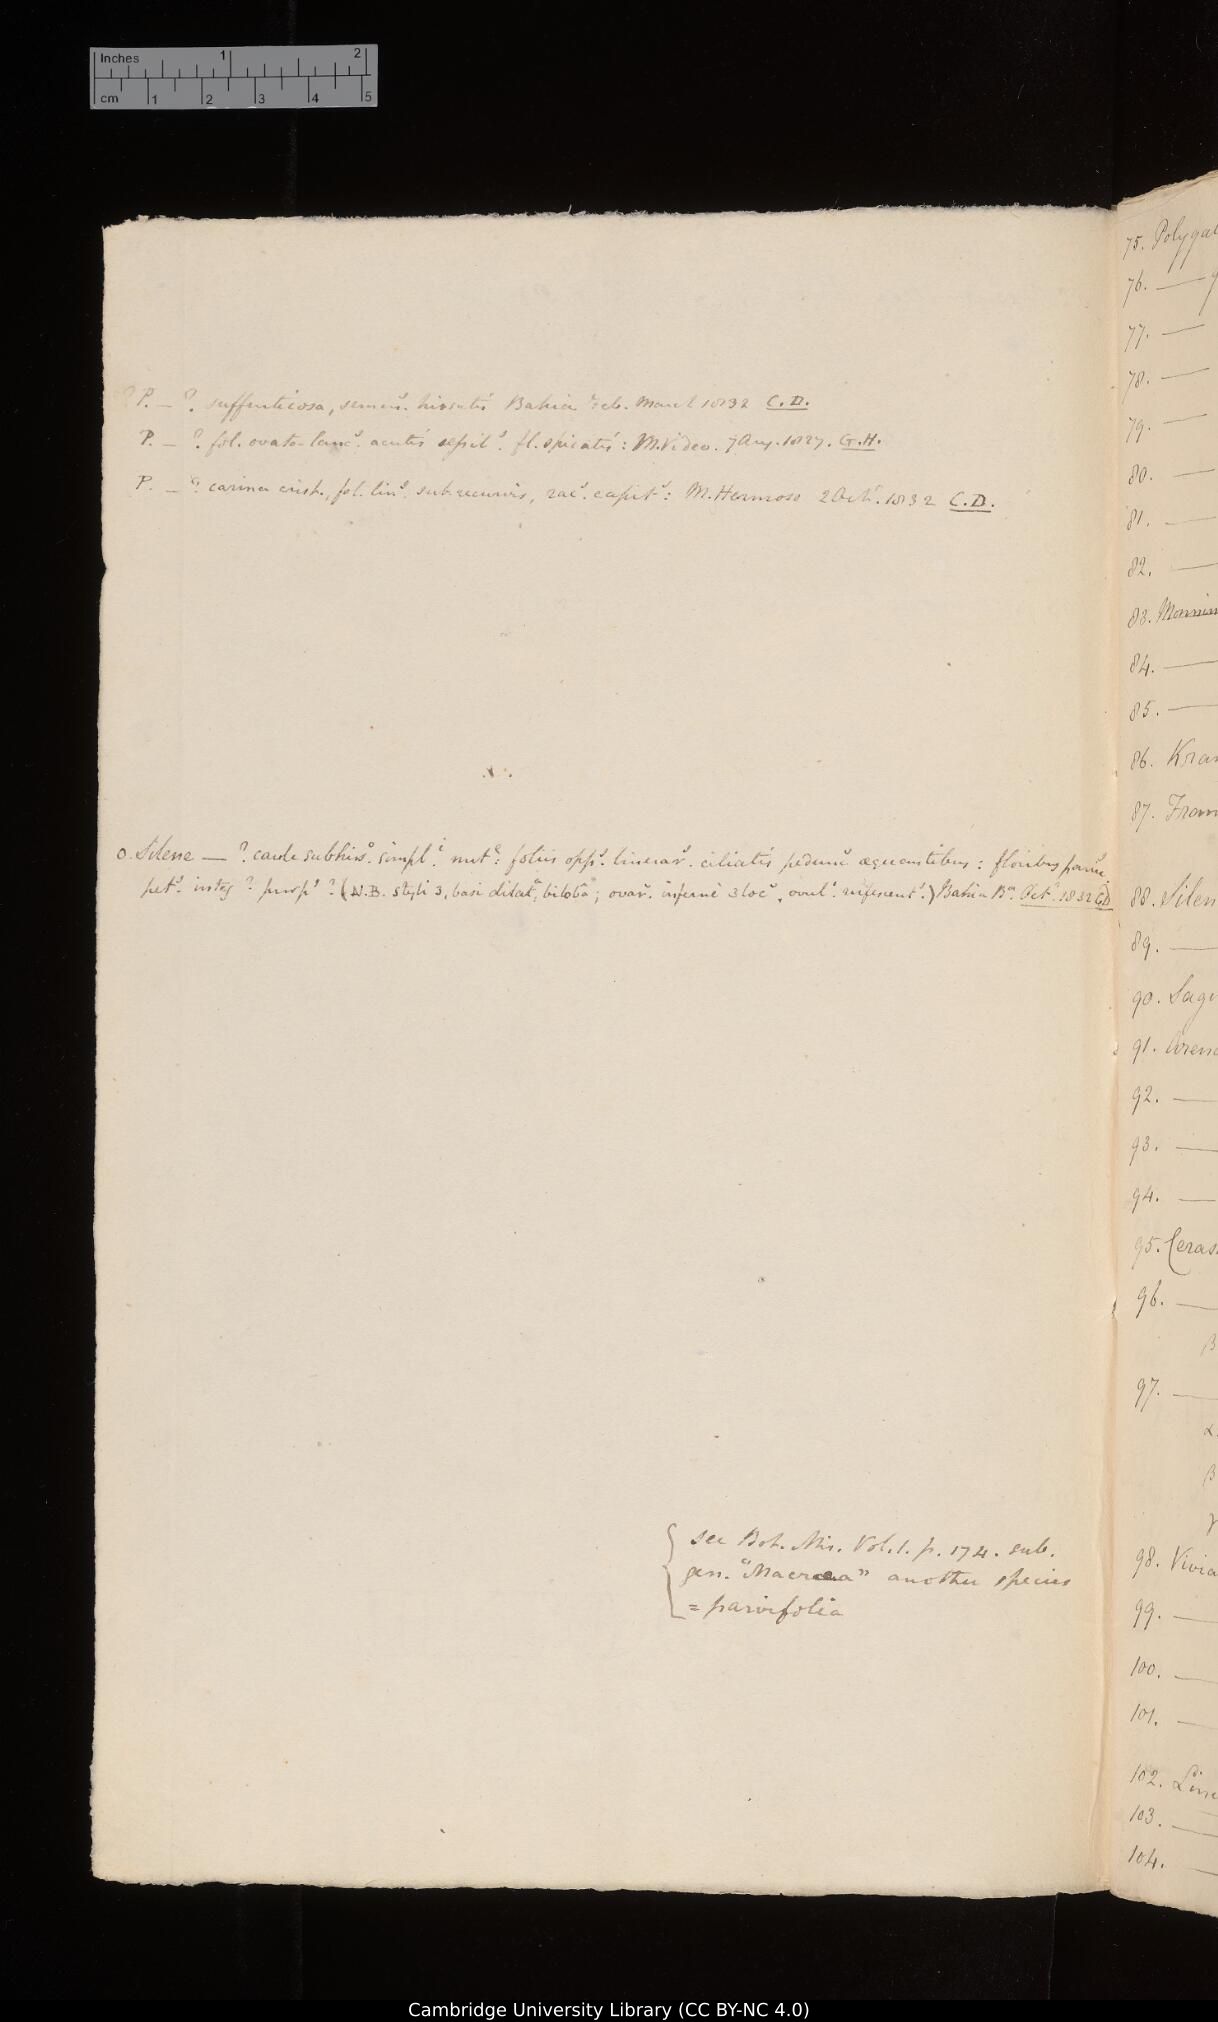 Inches 1 2
cm 1 2 3 4 5
? P. — ?. suffruticosa, semin.s hirsutis Bahia Feb. March 1832 C.D.
P. — ? fol. ovato-lanc.s acutis sessil.s fl. spicatis: M.Video. 7 Aug. 1827. G.H.
P. — ? carina crist., fol. lin.s sub recurvis, rac.s capit.s: M. Hermoso 2 Oct.r 1832 C.D.
o. Silene — ? caule subhirs.o simpl.i nut.e: foliis opp.s linear.s ciliatis pedunc. æquantibus: floribus
pet.s integ ? purp.s ? (N.B. Styli 3, basi dilat.a, biloba; ovar. inferne 3 loc.; ovul.s) Bahia B.a Oct.r 1832 CD
{ see Bot. Mis. Vol. 1. p. 174. sub.
gen. "Macræa" another species
= parvifolia
75. Polygal
76. —
77. —
78. —
79. —
80. —
81. —
82. —
83. Monnin
84. —
85. —
86. Kram
87. Fran
88. Silen
89. —
90. Sagi
91. Aren
92. —
93. —
94. —
95. Ceras
96. —
β
97. —
α
β
γ
98. Vivia
99. —
100. —
101. —
102. Linu
103. —
104. —
Cambridge University Library (CC BY-NC 4.0)